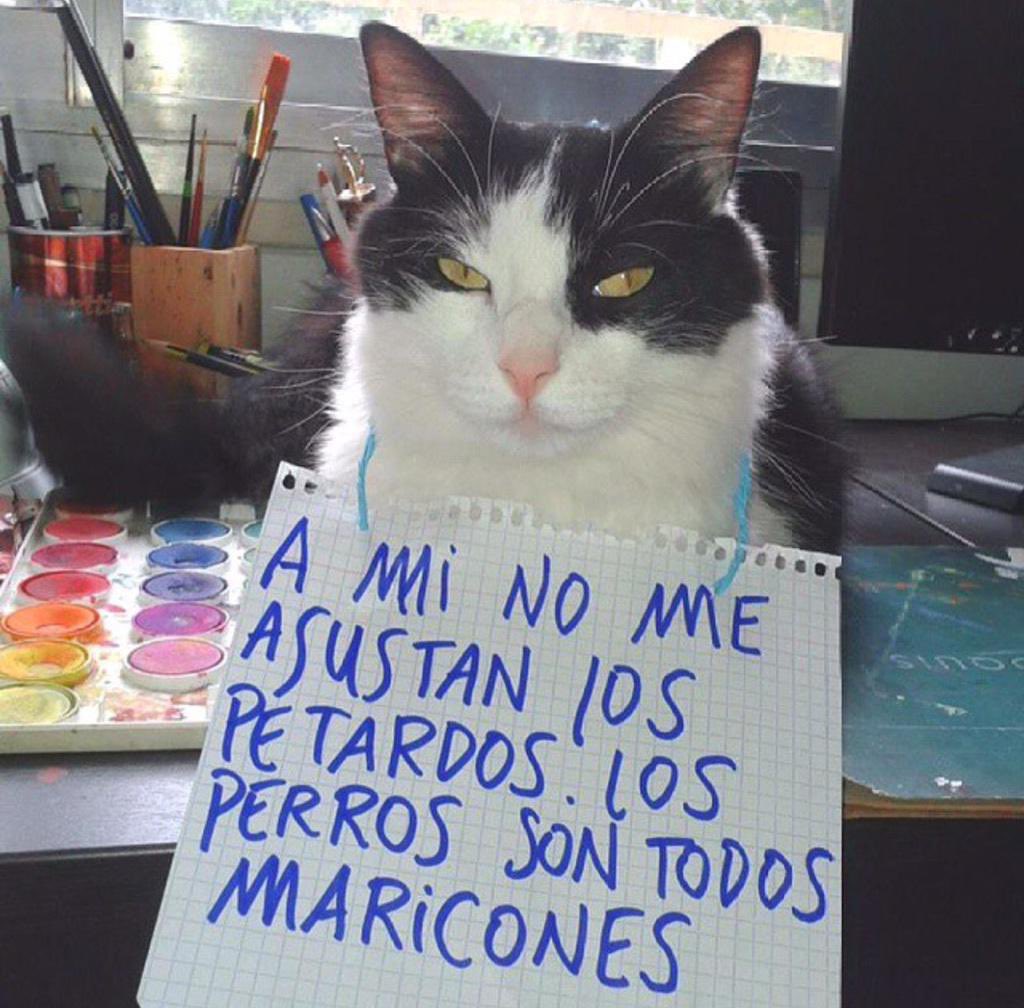 A MI NO ME
ASUSTAN LOS
PETARDOS. LOS
PERROS SON TODOS
MARICONES